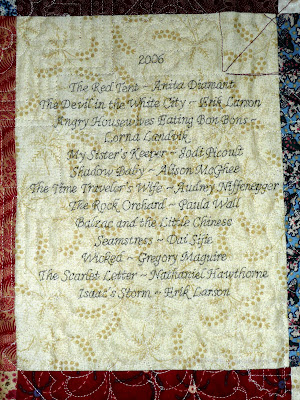 2006
The Red Tent ~ Anita Diamant
The Devil in the White City ~ Erik Larson
Angry Housewives Eating Bon Bons ~
Lorna Landvik
My Sister's Keeper ~ Jodi Picoult
Shadow Baby ~ Alison McGhee
The Time Traveler's Wife ~ Audrey Niffenegger
The Rock Orchard ~ Paula Wall
Balzac and the Little Chinese
Seamstress ~ Dai Sijie
Wicked ~ Gregory Maguire
The Scarlet Letter ~ Nathaniel Hawthorne
Isaac's Storm ~ Erik Larson